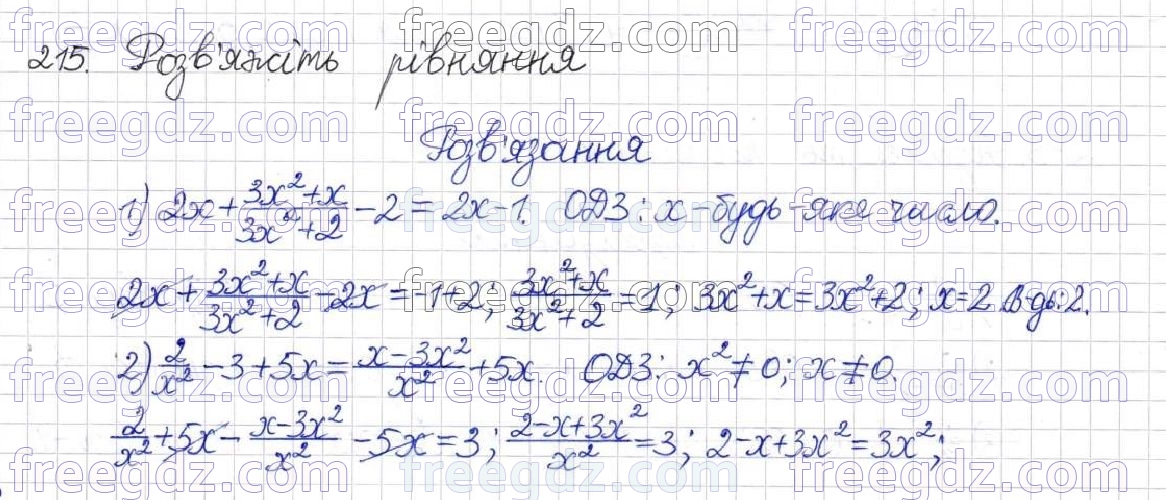 215. Розв'яжіть рівняння
Розв'язання
1) 2x + (3x² + x)/(3x² + 2) - 2 = 2x - 1. ОДЗ: x - будь-яке число.
2x + (3x² + x)/(3x² + 2) - 2x = -1 + 2; (3x² + x)/(3x² + 2) = 1; 3x² + x = 3x² + 2; x = 2. В-дь: 2.
2) 2/x² - 3 + 5x = (x - 3x²)/x² + 5x. ОДЗ: x² ≠ 0; x ≠ 0.
2/x² + 5x - (x - 3x²)/x² - 5x = 3; (2 - x + 3x²)/x² = 3; 2 - x + 3x² = 3x²;
freegdz.com